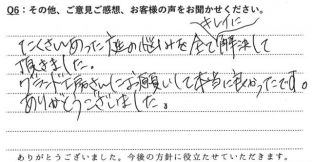 Q6：その他、ご意見ご感想、お客様の声をお聞かせください。
キレイに
たくさんあった庭の悩みを全て解決して
頂きました。
グランド工房さんにお願いして本当に良かったです。
ありがとうございました。
ありがとうございました。今後の方針に役立たせていただきます。